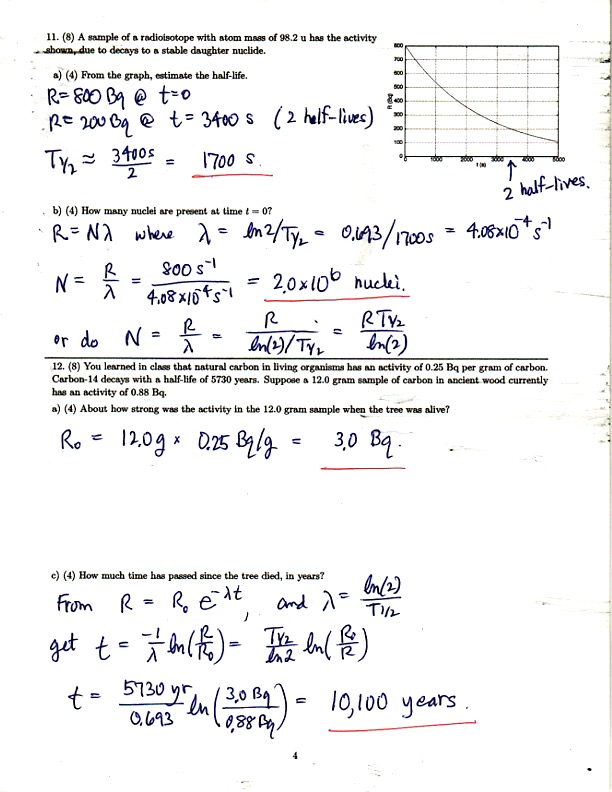 11. (8) A sample of a radioisotope with atom mass of 98.2 u has the activity
shown, due to decays to a stable daughter nuclide.
a) (4) From the graph, estimate the half-life.
R = 800 Bq @ t=0
R = 200 Bq @ t = 3400 s (2 half-lives)
T½ ≈ 3400s/2 = 1700 s.
800
700
600
500
400
300
200
100
0
R (Bq)
0 1000 2000 3000 4000 5000
T (s)
↑
2 half-lives.
b) (4) How many nuclei are present at time t = 0?
R = Nλ where λ = ln2/T½ = 0.693/1700s = 4.08x10⁻⁴ s⁻¹
N = R/λ = 800 s⁻¹/4.08x10⁻⁴ s⁻¹ = 2.0 x 10⁶ nuclei.
or do N = R/λ = R/ln(2)/T½ = R T½/ln(2)
12. (8) You learned in class that natural carbon in living organisms has an activity of 0.25 Bq per gram of carbon.
Carbon-14 decays with a half-life of 5730 years. Suppose a 12.0 gram sample of carbon in ancient wood currently
has an activity of 0.88 Bq.
a) (4) About how strong was the activity in the 12.0 gram sample when the tree was alive?
R₀ = 12.0g x 0.25 Bq/g = 3.0 Bq.
c) (4) How much time has passed since the tree died, in years?
From R = R₀ e^-λt, and λ = ln(2)/T1/2
get t = -1/λ ln(R/R₀) = T½/ln2 ln(R₀/R)
t = 5730 yr/0.693 ln(3.0 Bq/0.88 Bq) = 10,100 years.
4